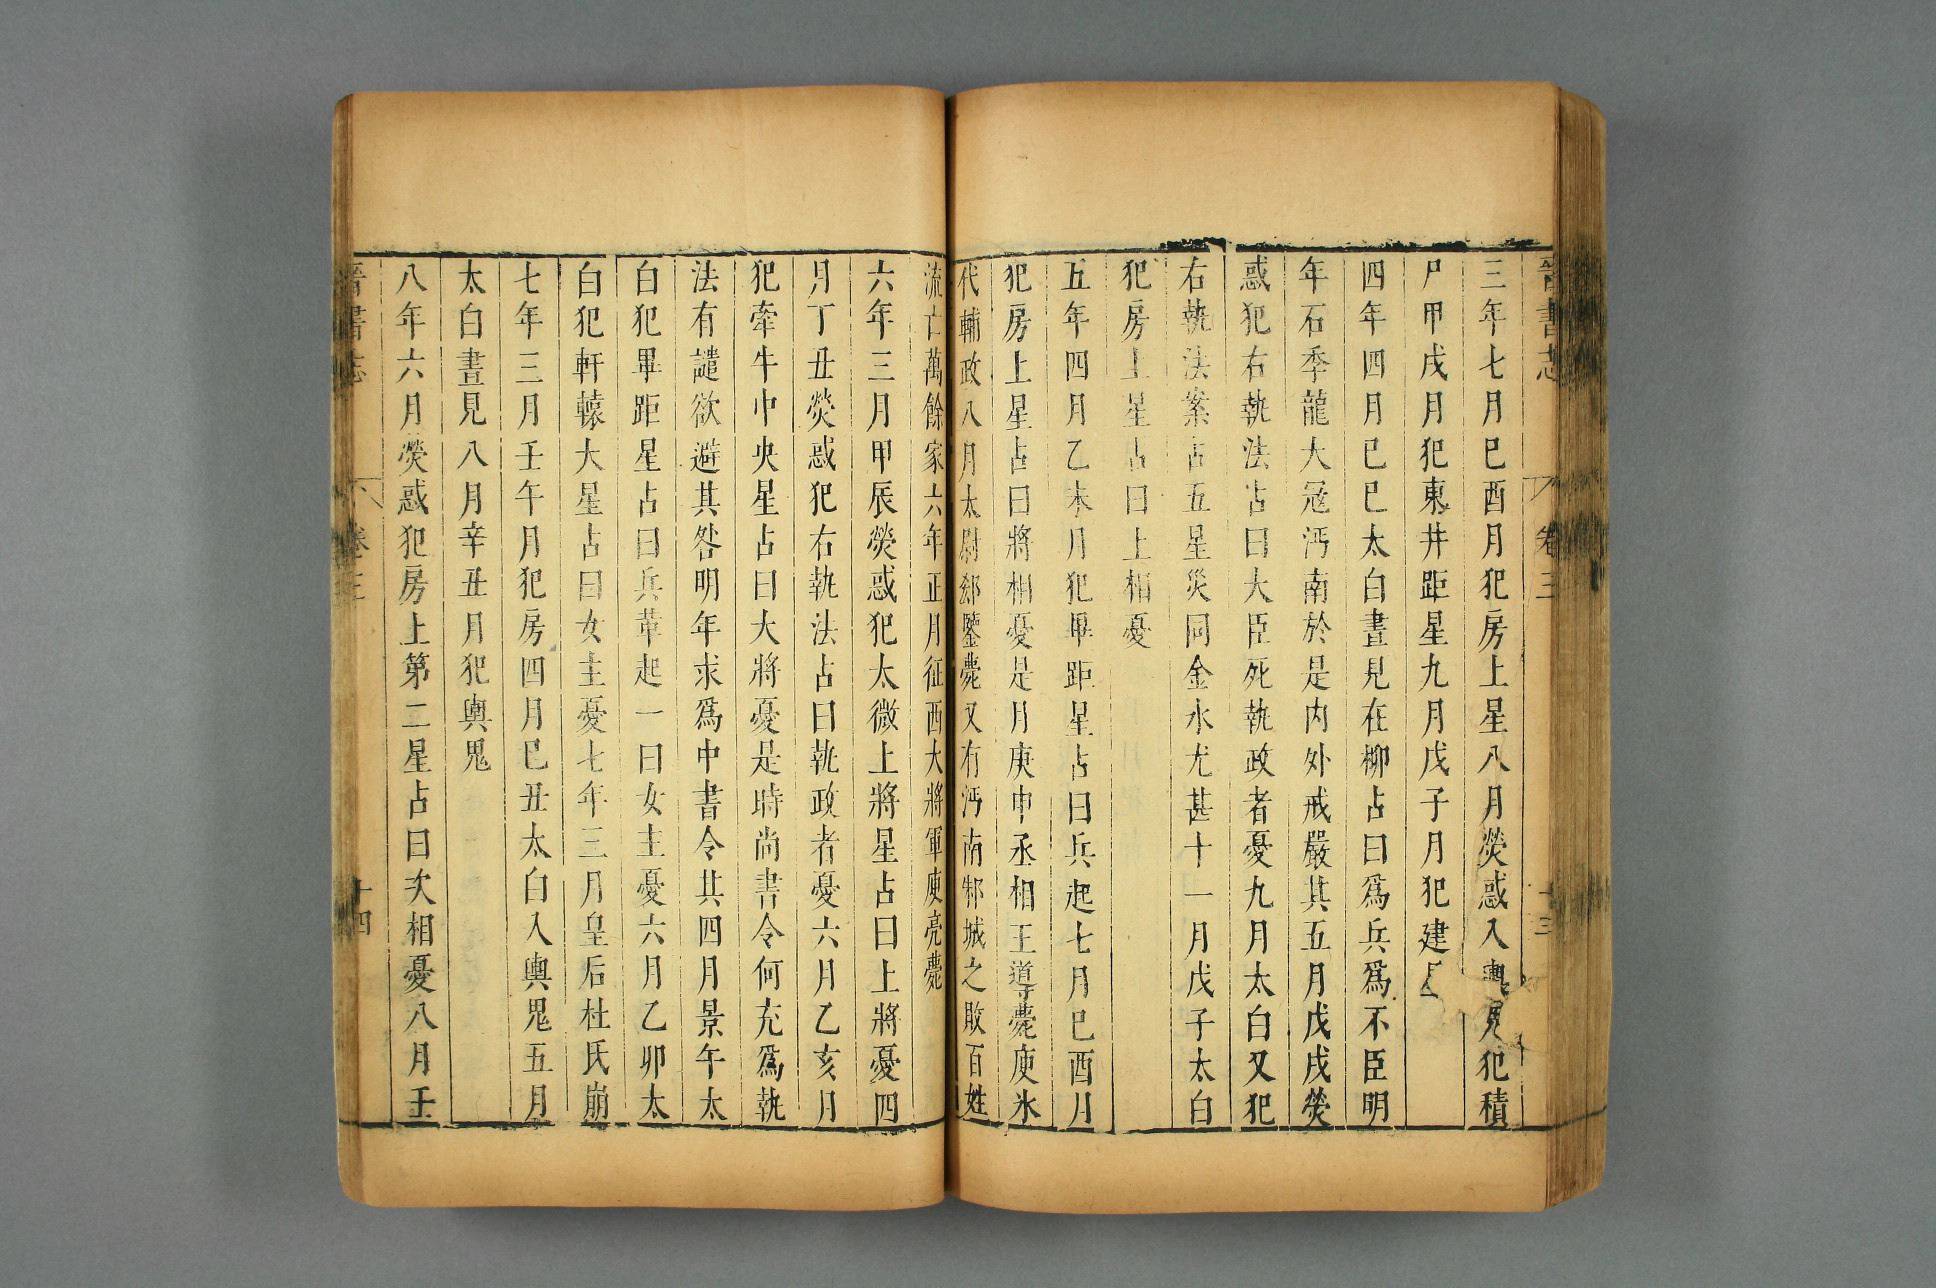 晉書志 卷三 十三
三年七月巳酉月犯房上星八月熒惑入輿鬼犯積
尸甲戌月犯東井距星九月戊子月犯建
四年四月巳巳太白晝見在柳占曰爲兵爲不臣明
年石季龍大冦沔南於是內外戒嚴其五月戊戌熒
惑犯右執法占曰大臣死執政者憂九月太白又犯
右執法案占五星災同金水尤甚十一月戊子太白
犯房上星占曰上相憂
五年四月乙未月犯畢距星占曰兵起七月巳酉月
犯房上星占曰將相憂是月庚申丞相王導薨庾氷
代輔政八月太尉郄鑒薨又有沔南邾城之敗百姓
流亡萬餘家六年正月征西大將軍庾亮薨
六年三月甲辰熒惑犯太微上將星占曰上將憂四
月丁丑熒惑犯右執法占曰執政者憂六月乙亥月
犯牽牛中央星占曰大將憂是時尚書令何充爲執
法有譴欲避其咎明年求爲中書令其四月景午太
白犯畢距星占曰兵革起一曰女主憂六月乙卯太
白犯軒轅大星占曰女主憂七年三月皇后杜氏崩
七年三月壬午月犯房四月巳丑太白入輿鬼五月
太白晝見八月辛丑月犯輿鬼
八年六月熒惑犯房上第二星占曰次相憂八月壬
晉書志 卷三 十四